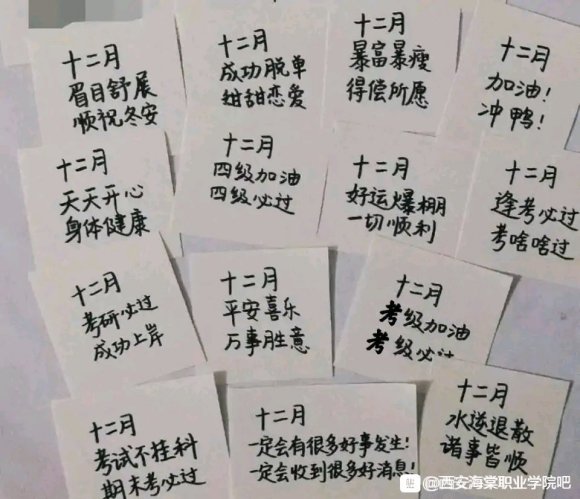 十二月
眉目舒展
顺祝冬安
十二月
成功脱单
甜甜恋爱
十二月
暴富暴瘦
得偿所愿
十二月
加油！
冲鸭！
十二月
天天开心
身体健康
十二月
四级加油
四级必过
十二月
好运爆棚
一切顺利
十二月
逢考必过
考啥啥过
十二月
考研必过
成功上岸
十二月
平安喜乐
万事胜意
十二月
考级加油
考级必过
十二月
考试不挂科
期末考必过
十二月
一定会有很多好事发生！
一定会收到很多好消息！
十二月
水逆退散
诸事皆顺
@西安海棠职业学院吧